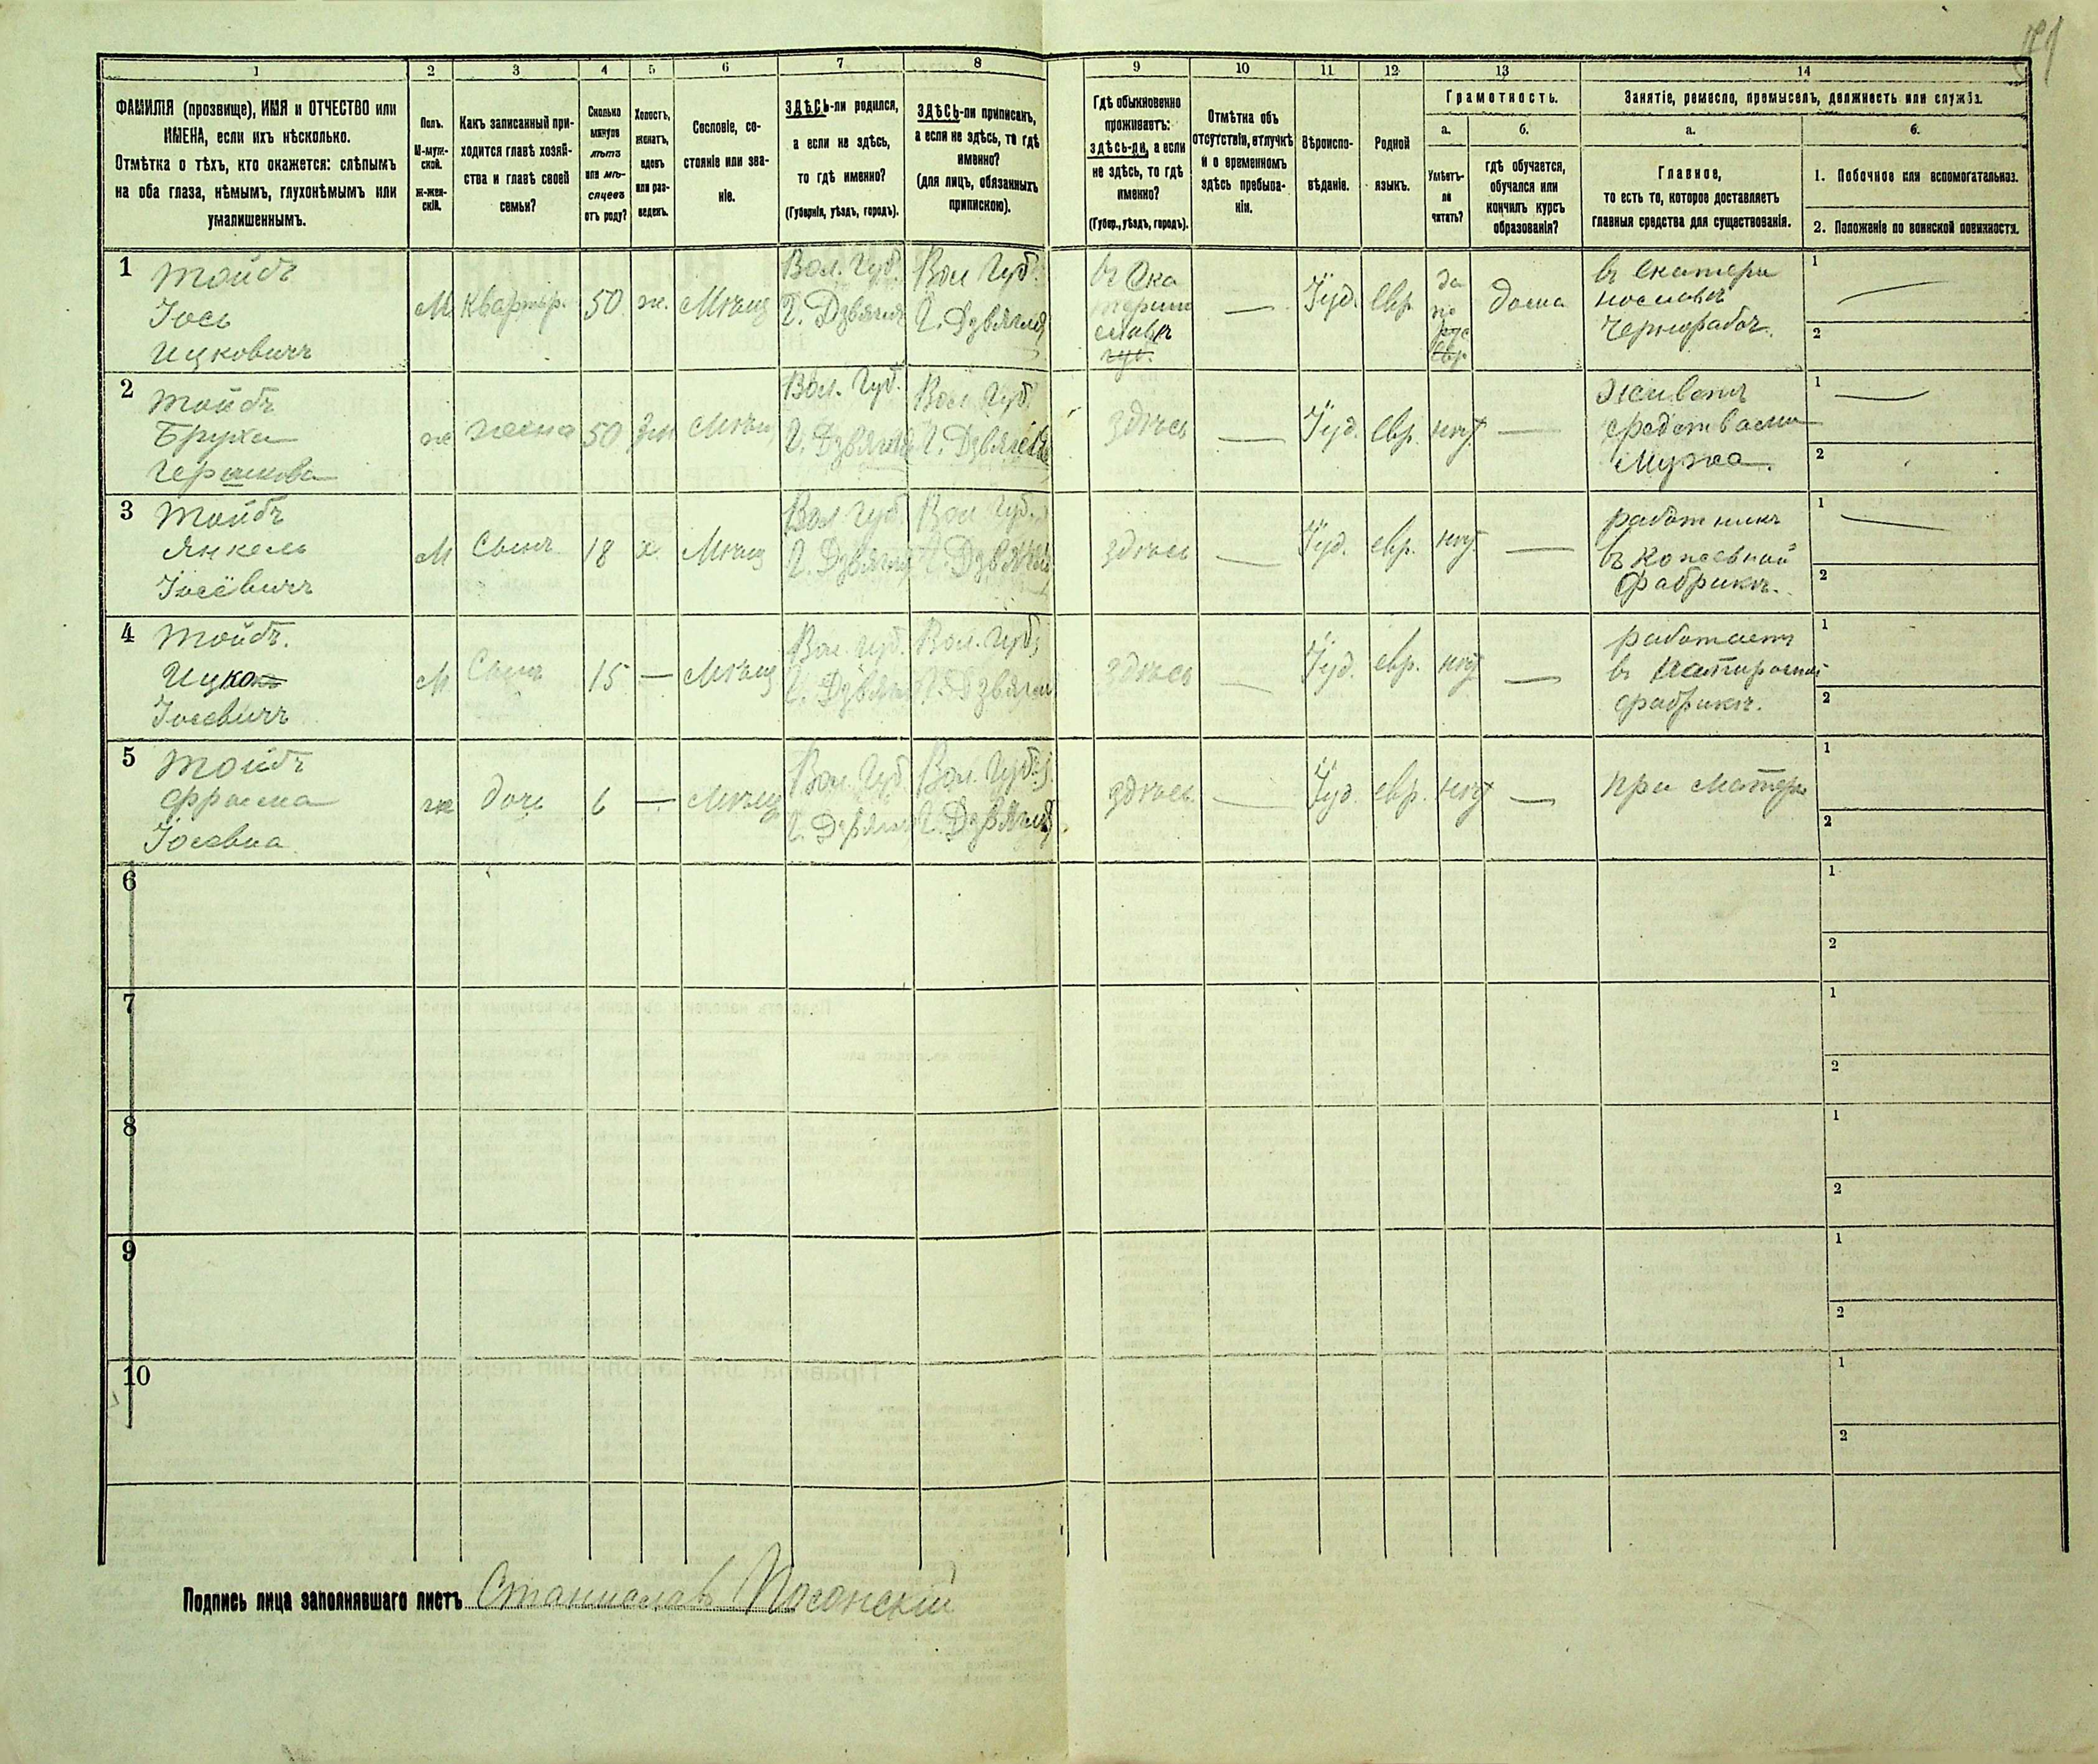 1 2 3 4 5 6 7 8 9 10 11 12 13 14
ФАМИЛІЯ (прозвище), ИМЯ и ОТЧЕСТВО или
ИМЕНА, если ихъ нѣсколько.
Отмѣтка о тѣхъ, кто окажется: слѣпымъ
на оба глаза, нѣмымъ, глухонѣмымъ или
умалишеннымъ.
Полъ.
М-муж-
ской.
ж-жен-
скій.
Какъ записанный при-
ходится главѣ хозяй-
ства и главѣ своей
семьи?
Сколько
минуло
лѣтъ
или мѣ-
сяцевъ
отъ роду?
Холостъ,
женатъ,
вдовъ
или раз-
веденъ.
Сословіе, со-
стояніе или зва-
ніе.
ЗДѢСЬ-ли родился,
а если не здѣсь,
то гдѣ именно?
(Губернія, уѣздъ, городъ).
ЗДѢСЬ-ли приписанъ,
а если не здѣсь, то гдѣ
именно?
(для лицъ, обязанныхъ
припискою).
Гдѣ обыкновенно
проживаетъ:
здѣсь-ли, а если
не здѣсь, то гдѣ
именно?
(Губер., уѣздъ, городъ).
Отмѣтка объ
отсутствіи, отлучкѣ
и о временномъ
здѣсь пребыва-
ніи.
Вѣроиспо-
вѣданіе.
Родной
языкъ.
Грамотность.
а.
Умѣетъ-
ли
читать?
б.
гдѣ обучается,
обучался или
кончилъ курсъ
образованія?
Занятіе, ремесло, промыселъ, должность или служба.
а.
Главное,
то есть то, которое доставляетъ
главныя средства для существованія.
б.
1. Побочное или вспомогательное.
2. Положеніе по воинской повинности.
1 Тойбъ
Іось
Ицковичъ
М
Квартир.
50
ж.
Мѣщ
Вол. Губ.
Г. Дзвягля
Вол Губ.
Г. Дзвягля
въ Ека
терин
славѣ
губ.
—
Іуд.
Евр.
да
по
евр
дома
въ Екатери
нославѣ
Чернорабоч.
1 —
2
2 Тойбъ
Бруха
Гершкова
ж
жена
50
Зм
Мѣщ
Вол. Губ.
Г. Дзвягля
Вол. Губ.
Г. Дзвягля
здѣсь
—
Іуд.
Евр.
нѣт
—
Живетъ
средствами
Мужа.
1 —
2
3 Тойбъ
Янкель
Іосёвичъ
М
Сынъ
18
х.
Мѣщ
Вол Губ.
Г. Дзвягля
Вол Губ.
Г. Дзвягля
здѣсь
—
Іуд.
евр.
нѣт
—
работникъ
въ Кожевной
Фабрикѣ.
1 —
2
4 Тойбъ.
Ицко
Іосевичъ
М
Сынъ
15
—
Мѣщ
Вол. Губ.
Г. Дзвягля
Вол. Губ.
Г. Дзвягля
здѣсь
—
Іуд.
евр.
нѣт
—
работаетъ
въ
фабрикѣ.
1
2
5 Тойбъ
Фрома
Іосевна
ж
дочь
6
—
Мѣщ
Вол. Губ
Г. Дзвягля
Вол. Губ.
Г. Дзвягля
здѣсь
—
Іуд.
евр.
нѣт
—
при матери
1
2
6
1
2
7
1
2
8
1
2
9
1
2
10
1
2
Подпись лица заполнявшаго листъ Станиславъ